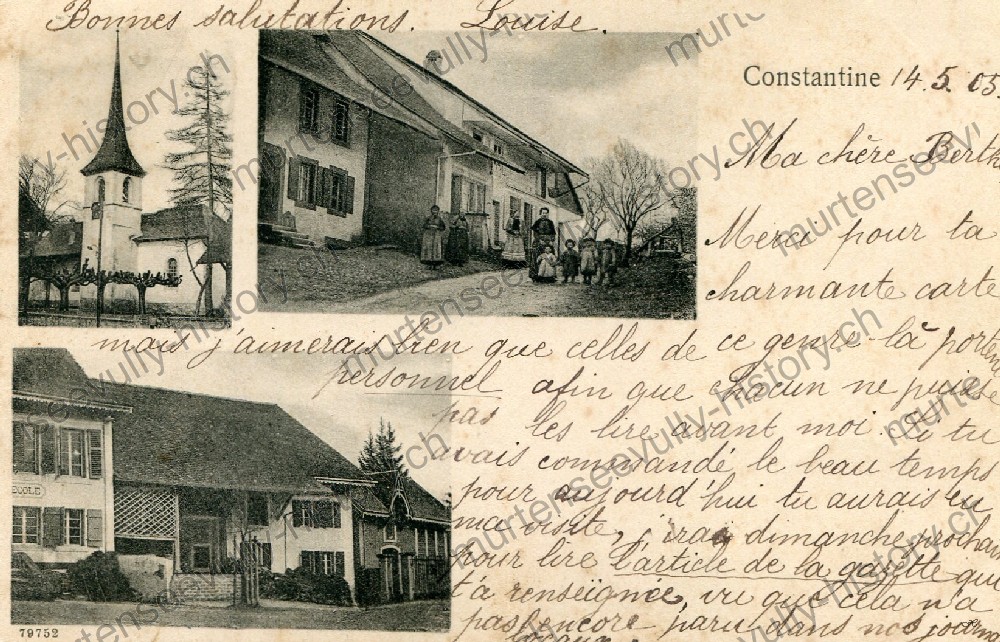 Bonnes salutations. Louise.
Constantine 14.5.05.
Ma chère Berthe
Merci pour ta
charmante carte
mais j'aimerais bien que celles de ce genre-là portent
personnel afin que chacun ne puisse
pas les lire avant moi. Si tu
avais commandé le beau temps
pour aujourd'hui tu aurais eu
ma visite, j'irai dimanche prochain
pour lire l'article de la gazette qui
t'a renseignée, vu que cela n'a
pas encore paru dans nos journ
ECOLE
79752
murtenseevully-history.ch
murtenseevully-history.ch
murtenseevully-history.ch
murtenseevully-history.ch